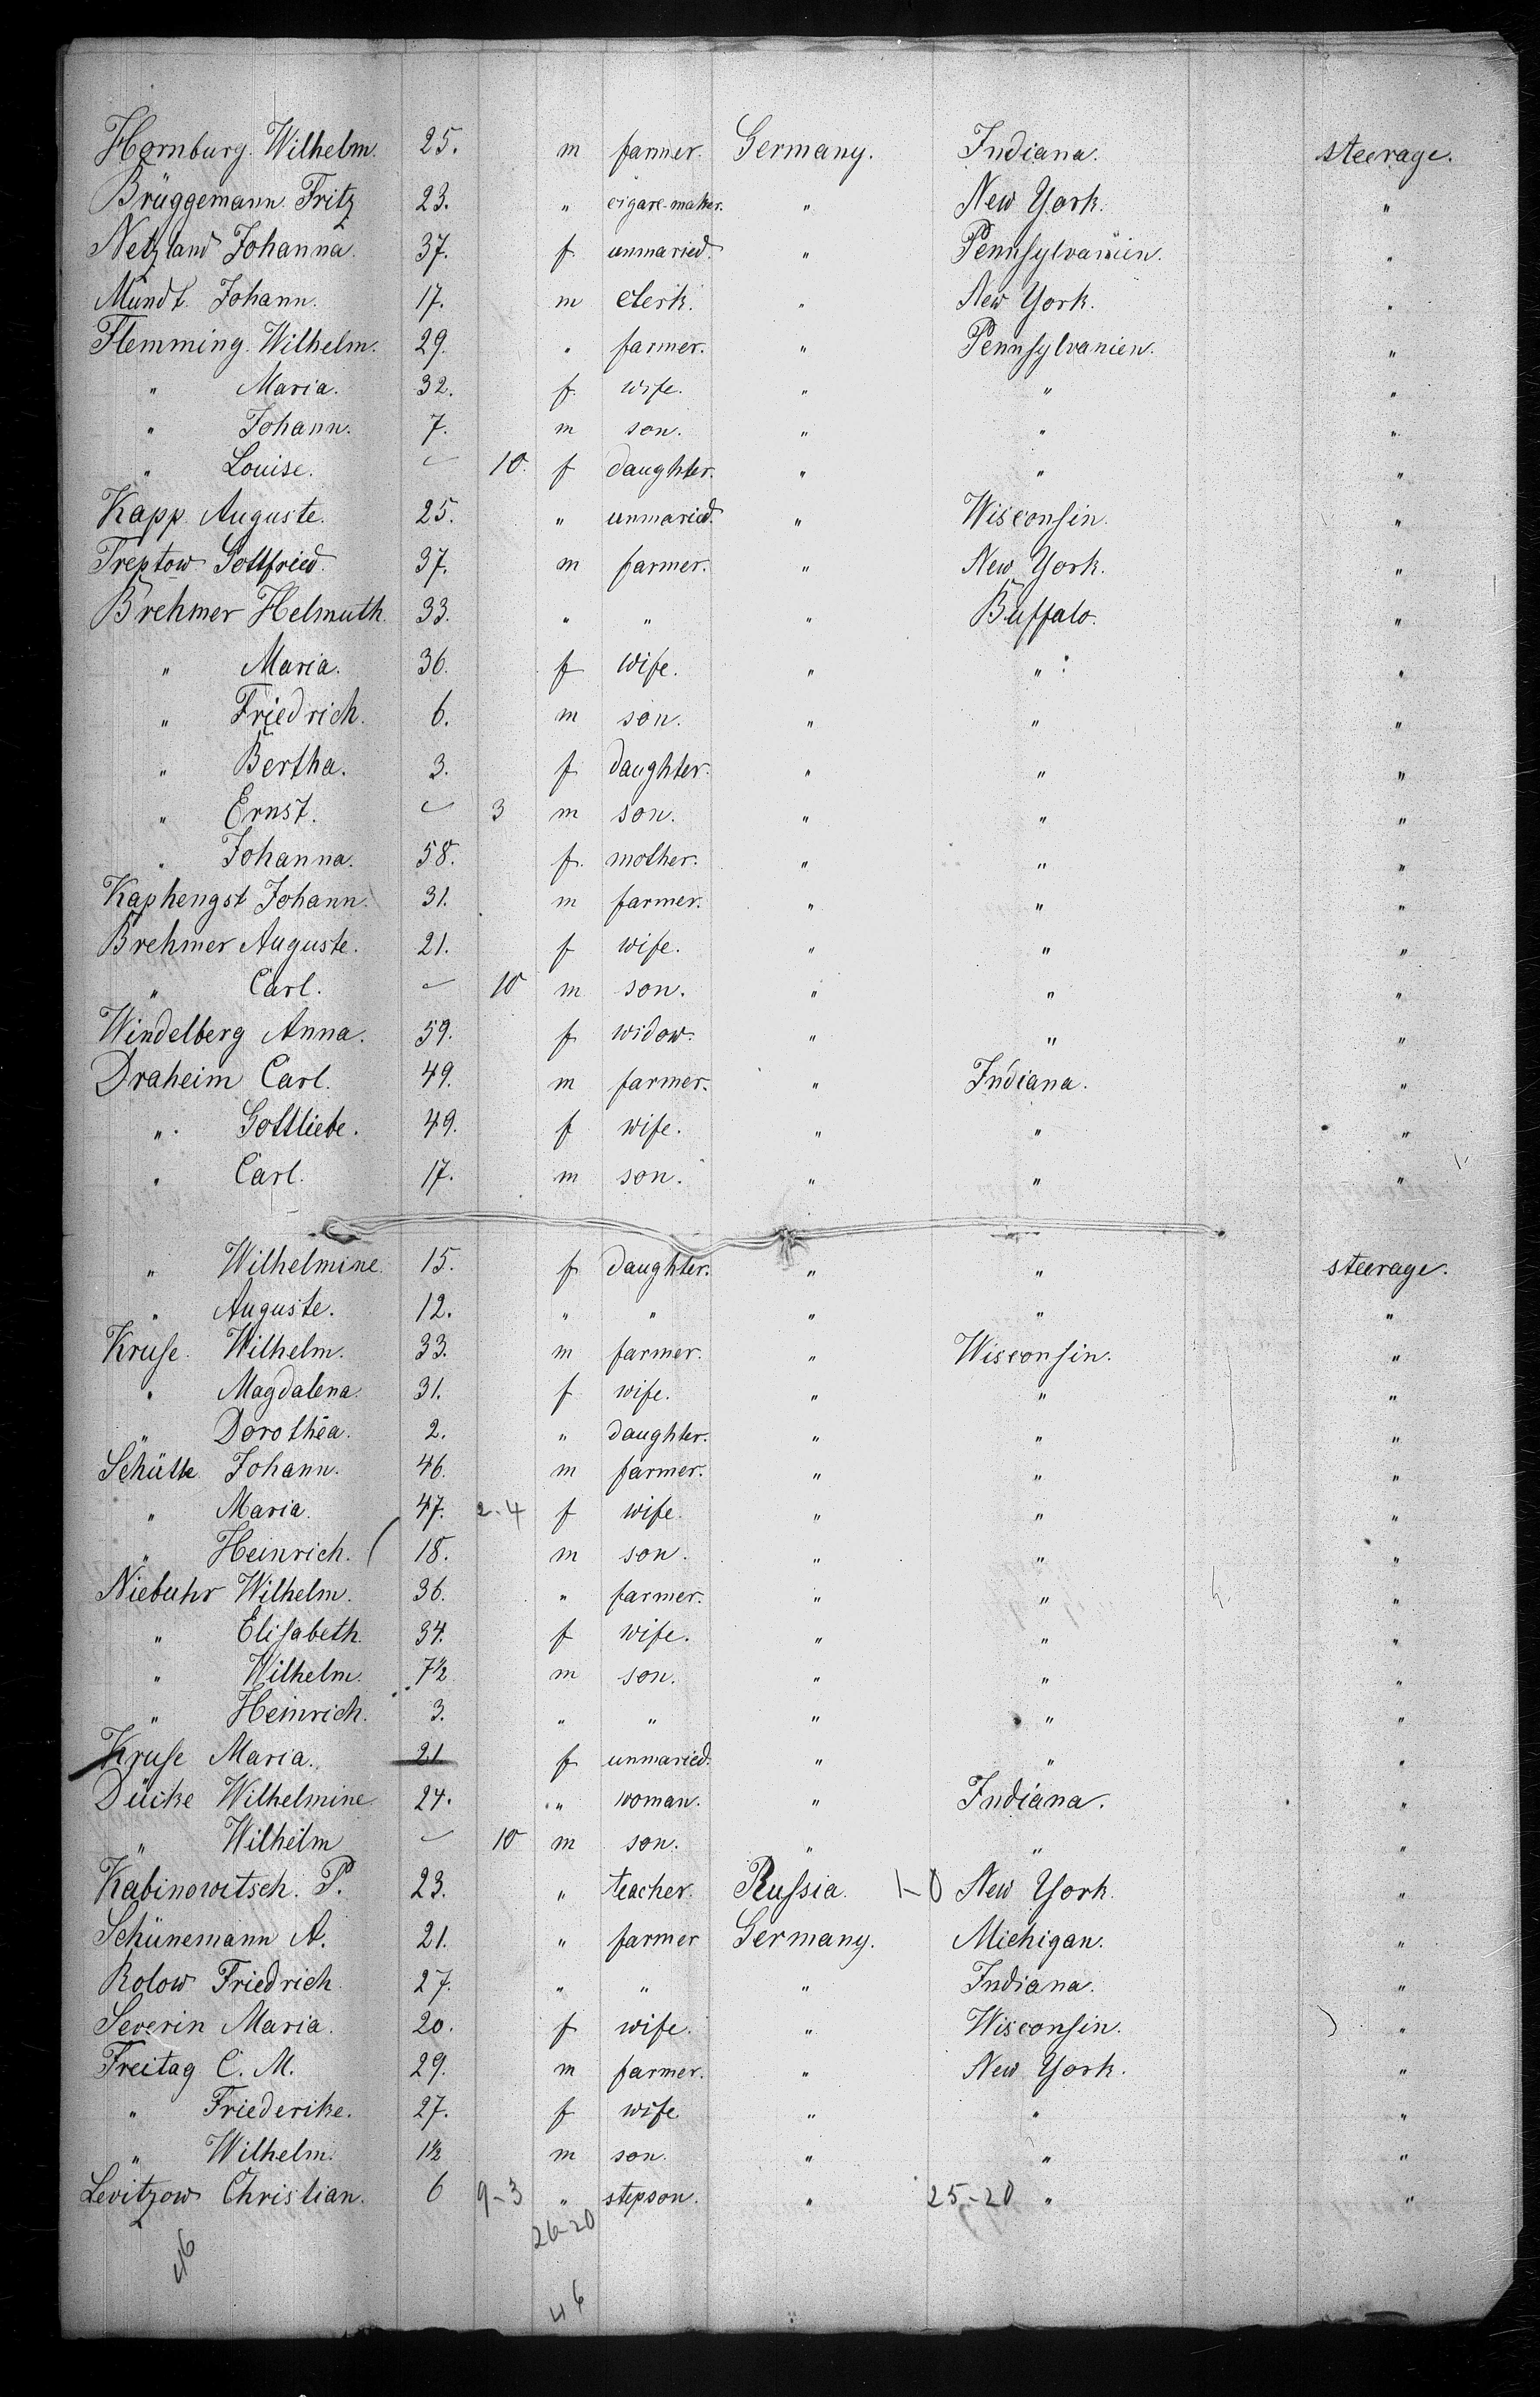 Hornburg. Wilhelm. 25. m farmer. Germany. Indiana. steerage.
Brüggemann. Fritz 23. " cigare-maker. " New York. "
Netzland Johanna. 37. f unmaried. " Pennsylvanien. "
Mundt. Johann. 17. m clerk. " New York. "
Flemming. Wilhelm. 29. " farmer. " Pennsylvanien. "
" Maria. 32. f. wife. " " "
" Johann. 7. m son. " " "
" Louise. 10. f daughter. " " "
Kapp. Auguste. 25. " unmaried. " Wisconsin. "
Treptow Gottfried. 37. m farmer. " New York. "
Brehmer Helmuth. 33. " " " Buffalo. "
" Maria. 36. f wife. " " "
" Friedrich. 6. m son. " " "
" Bertha. 3. f daughter. " " "
" Ernst. 3 m son. " " "
" Johanna. 58. f. mother. " " "
Kaphengst Johann. 31. m farmer. " " "
Brehmer Auguste. 21. f wife. " " "
" Carl. 10 m son. " " "
Windelberg Anna. 59. f widow. " " "
Draheim Carl. 49. m farmer. " Indiana. "
" Gottliebe. 49. f wife. " " "
" Carl. 17. m son. " " "
" Wilhelmine. 15. f daughter. " " steerage.
" Auguste. 12. " " " " "
Kruse. Wilhelm. 33. m farmer. " Wisconsin. "
" Magdalena. 31. f wife. " " "
" Dorothea. 2. " daughter. " " "
Schütte Johann. 46. m farmer. " " "
" Maria. 47. 2-4 f wife. " " "
" Heinrich. 18. m son. " " "
Niebuhr Wilhelm. 36. " farmer. " " "
" Elisabeth. 34. f wife. " " "
" Wilhelm. 7½ m son. " " "
" Heinrich. 3. " " " " "
Kruse Maria. 21 f unmaried. " " "
Dücke Wilhelmine 24. " woman. " Indiana. "
" Wilhelm 10 m son. " " "
Kabinowitsch. P. 23. " teacher. Russia. 1-0 New York. "
Schünemann A. 21. " farmer Germany. Michigan. "
Rolow Friedrich 27. " " " Indiana. "
Severin Maria. 20. f wife. " Wisconsin. "
Freitag C. M. 29. m farmer. " New York. "
" Friederike. 27. f wife " " "
" Wilhelm. 1½ m son. " " "
Levitzow Christian. 6 9-3 " stepson. " 25-20 " "
26-20
46
46